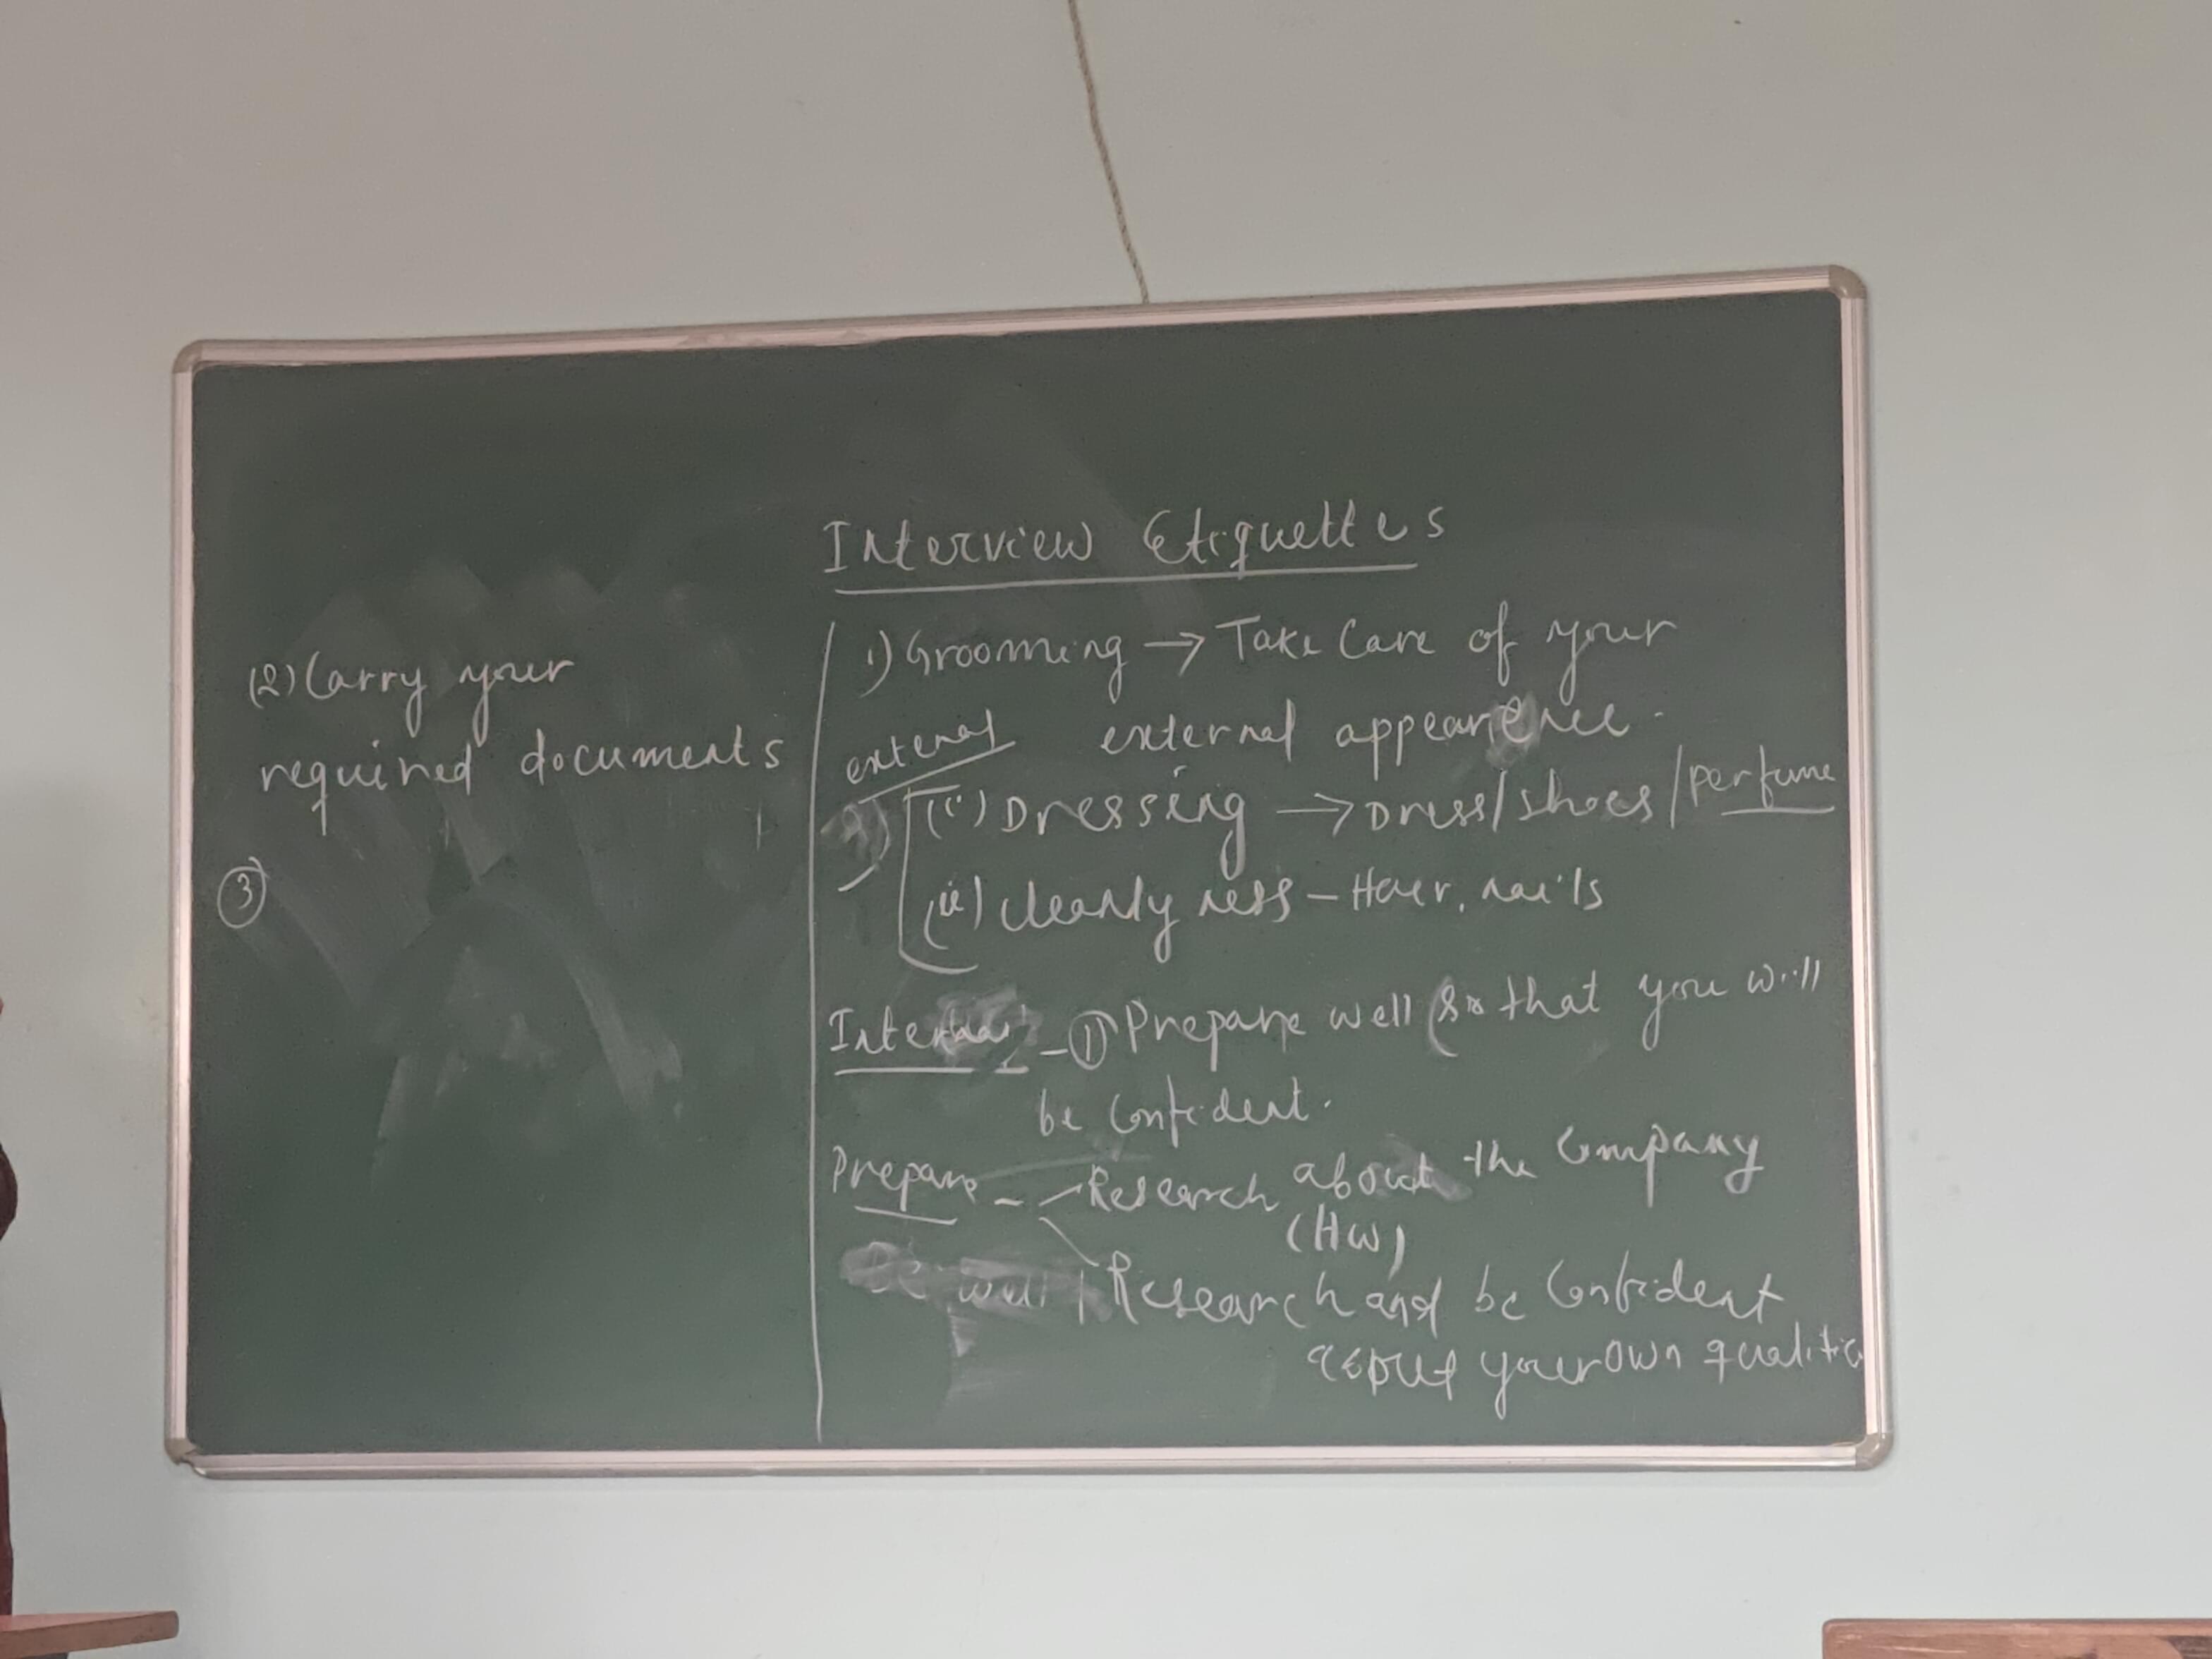 Interview Etiquettes
1) Grooming → Take Care of your
external appearence.
external
(i) Dressing → Dress/shoes/perfume
(ii) cleanlyness - Hair, nails
Internal - ① Prepare well so that you will
be Confident.
Prepare - Research about the Company
(HW)
Research and be Confident
about your own qualitie
(2) Carry your
required documents
③